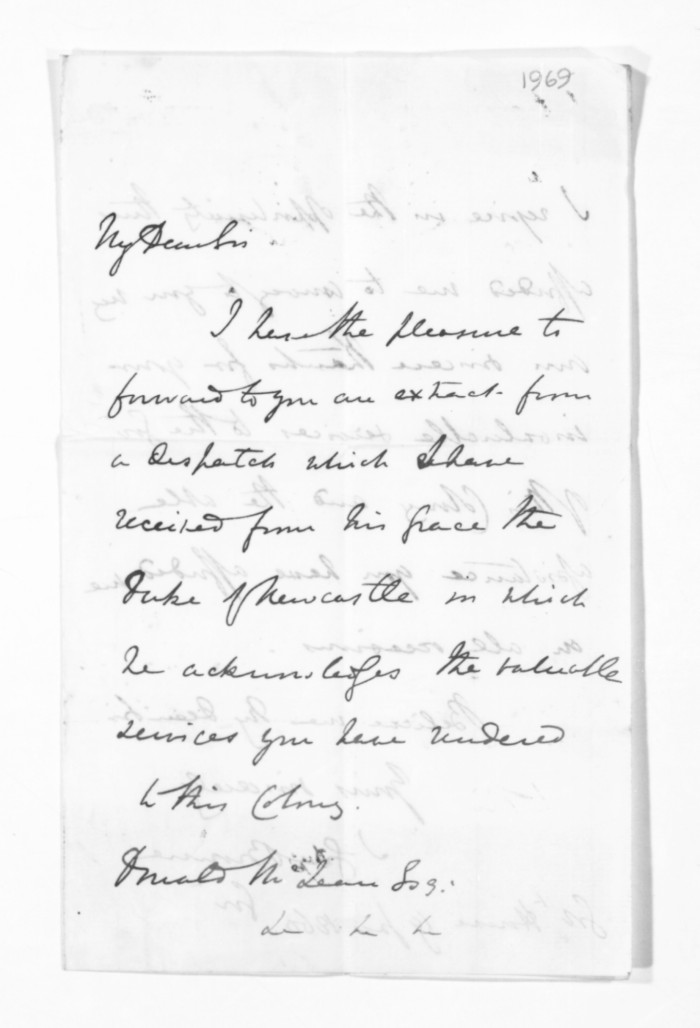 1969
My Dear Sir
I have the pleasure to
forward to you an extract from
a Despatch which I have
received from his Grace the
Duke of Newcastle in which
he acknowledges the valuable
services you have rendered
to this Colony.
Donald McLean Esq: